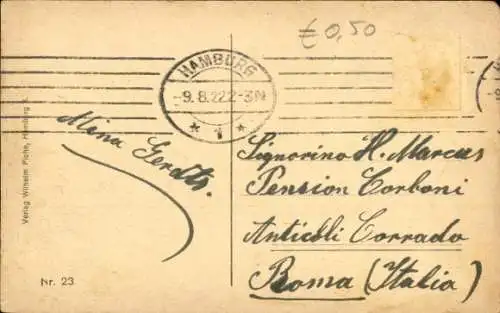 € 0,50
HAMBURG
-9.8.22.2-3N
* 1 *
Mina Gerdts.
Signorino H. Marcus
Pension Corboni
Anticoli Corrado
Roma (Italia)
Verlag Wilhelm Plohe, Hamburg
Nr. 23